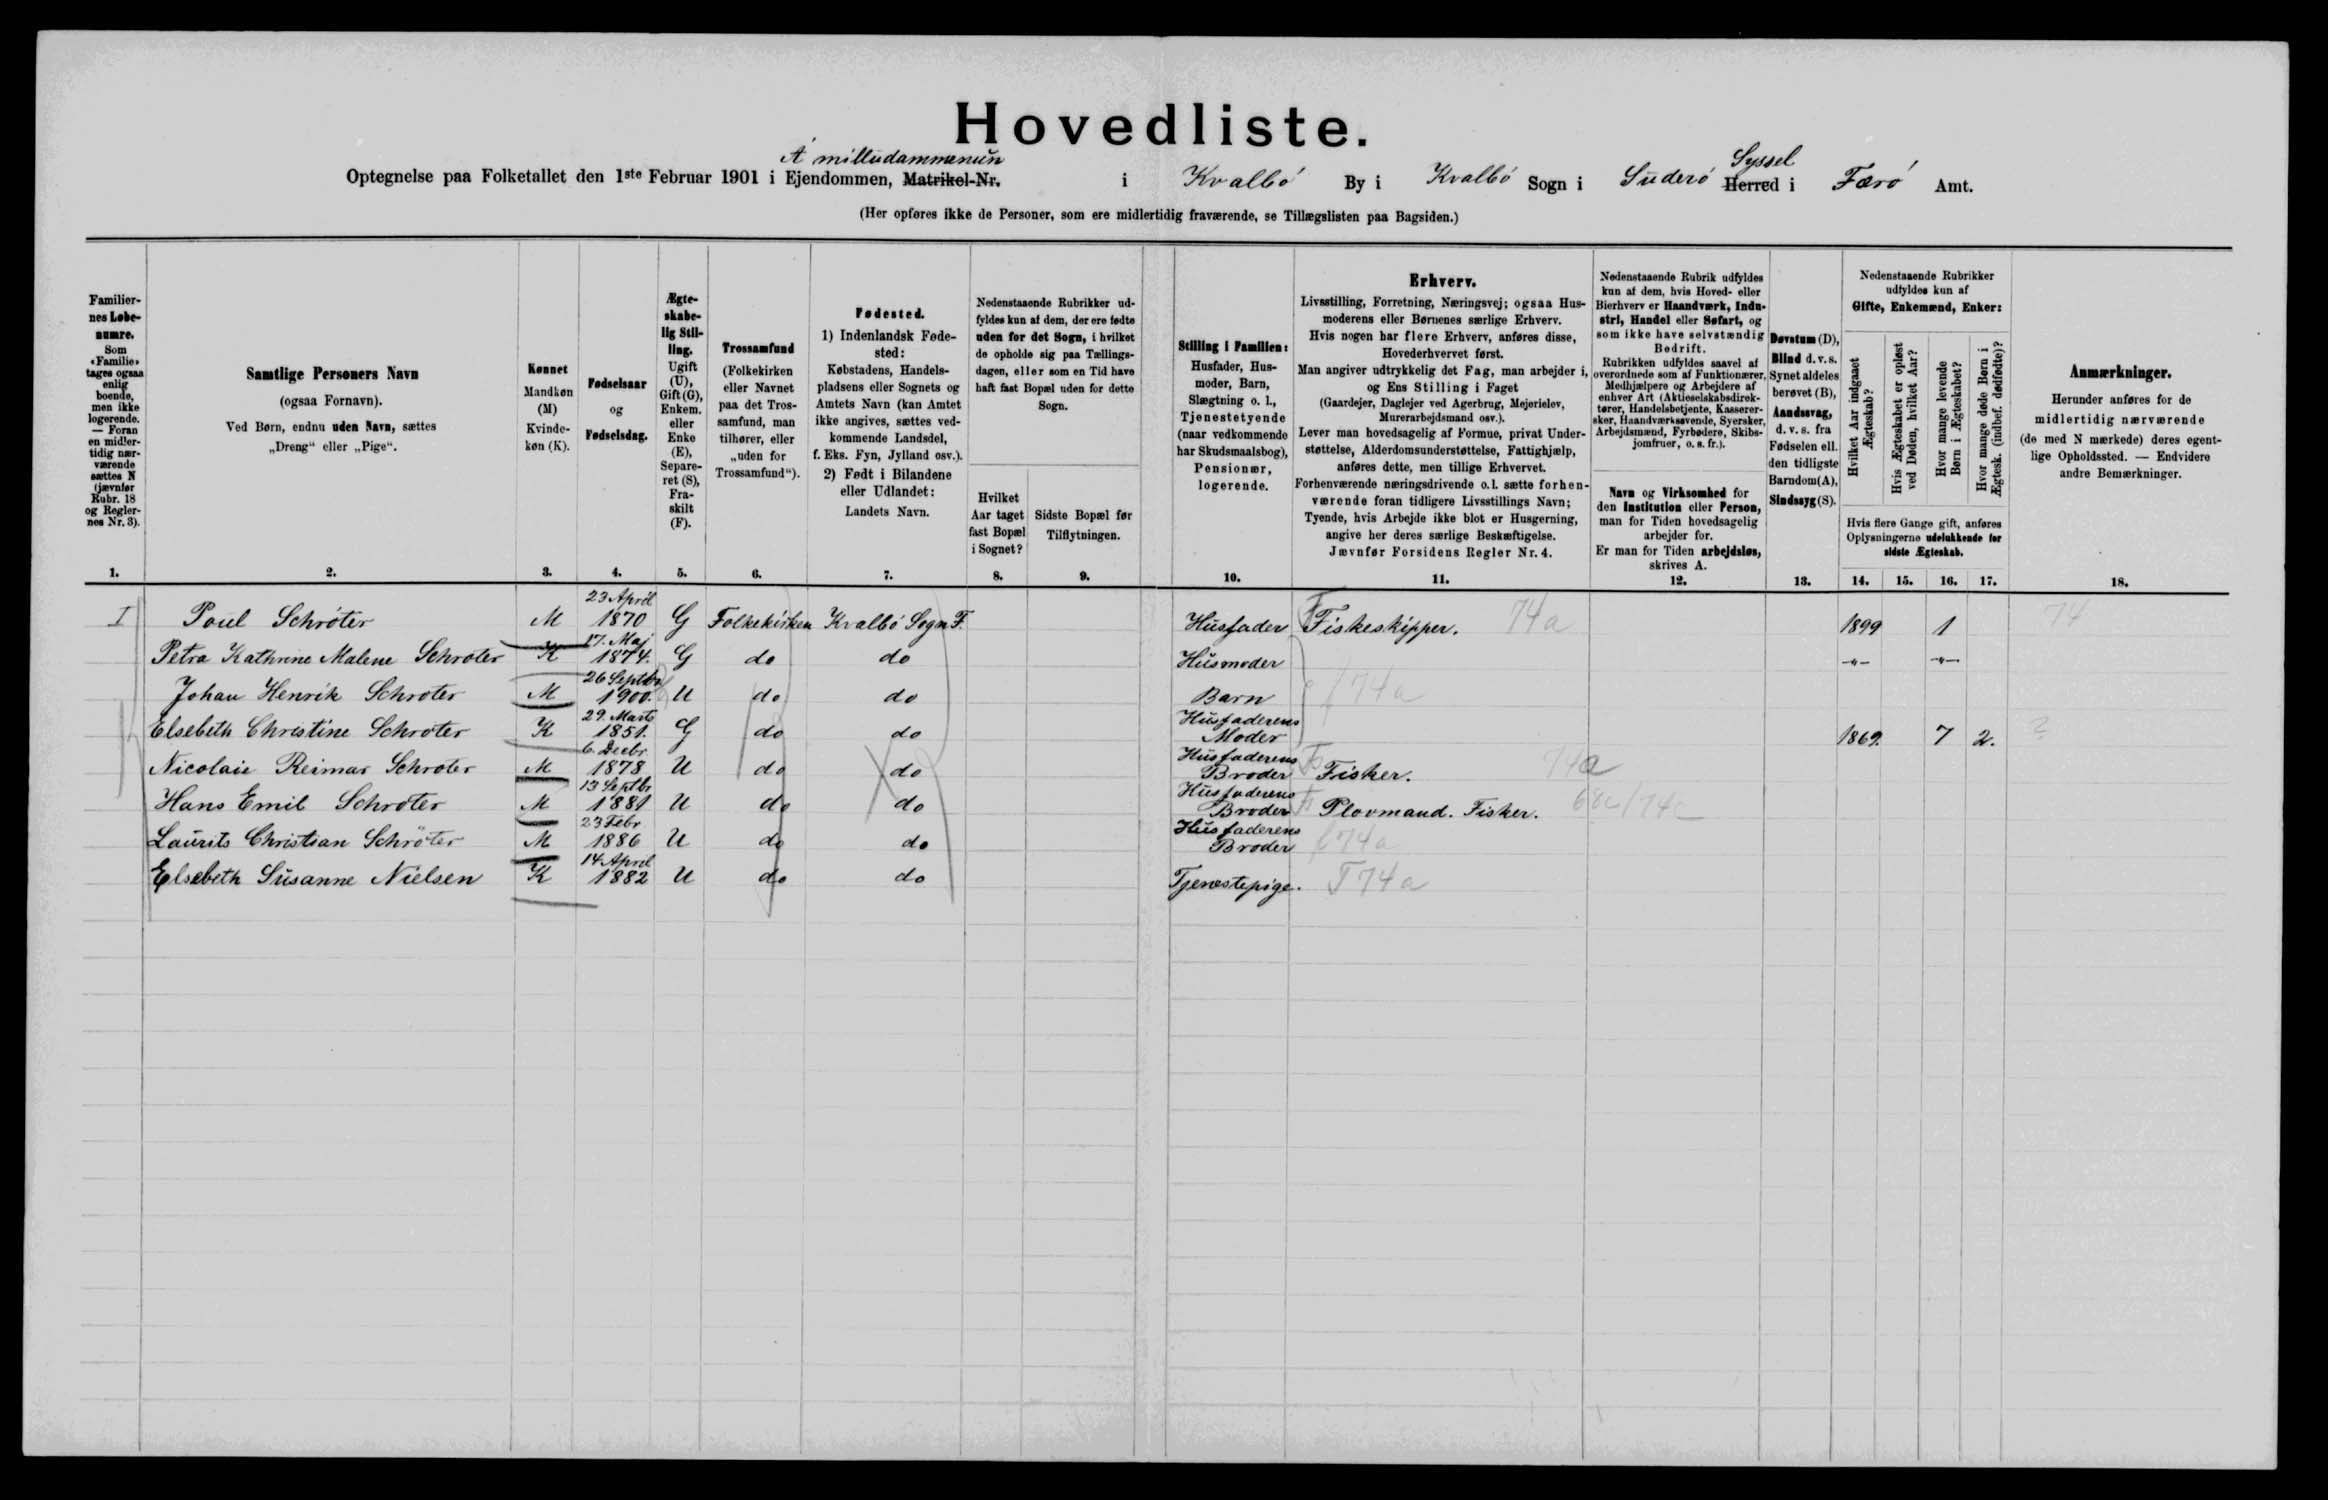 Hovedliste.
Á milludammenun
Syssel
Optegnelse paa Folketallet den 1ste Februar 1901 i Ejendommen, Matrikel-Nr. i Kvalbö By i Kvalbö Sogn i Süderö Herred i Færö Amt.
(Her opføres ikke de Personer, som ere midlertidig fraværende, se Tillægslisten paa Bagsiden.)
Familier-
nes Løbe-
numre.
Som
«Familie»
tages ogsaa
enlig
boende,
men ikke
logerende.
— Foran
en midler-
tidig nær-
værende
sættes N
(jævnfør
Rubr. 18
og Regler-
nes Nr. 3).
1.
Samtlige Personers Navn
(ogsaa Fornavn).
Ved Børn, endnu uden Navn, sættes
„Dreng“ eller „Pige“.
2.
Kønnet
Mandkøn
(M)
Kvinde-
køn (K).
3.
Fødselsaar
og
Fødselsdag.
4.
Ægte-
skabe-
lig Stil-
ling.
Ugift
(U),
Gift (G),
Enkem.
eller
Enke
(E),
Separe-
ret (S),
Fra-
skilt
(F).
5.
Trossamfund
(Folkekirken
eller Navnet
paa det Tros-
samfund, man
tilhører, eller
„uden for
Trossamfund“).
6.
Fødested.
1) Indenlandsk Føde-
sted:
Købstadens, Handels-
pladsens eller Sognets og
Amtets Navn (kan Amtet
ikke angives, sættes ved-
kommende Landsdel,
f. Eks. Fyn, Jylland osv.).
2) Født i Bilandene
eller Udlandet:
Landets Navn.
7.
Nedenstaaende Rubrikker ud-
fyldes kun af dem, der ere fødte
uden for det Sogn, i hvilket
de opholde sig paa Tællings-
dagen, eller som en Tid have
haft fast Bopæl uden for dette
Sogn.
Hvilket
Aar taget
fast Bopæl
i Sognet?
8.
Sidste Bopæl før
Tilflytningen.
9.
Stilling i Familien:
Husfader, Hus-
moder, Barn,
Slægtning o. l.,
Tjenestetyende
(naar vedkommende
har Skudsmaalsbog),
Pensionær,
logerende.
10.
Erhverv.
Livsstilling, Forretning, Næringsvej; ogsaa Hus-
moderens eller Børnenes særlige Erhverv.
Hvis nogen har flere Erhverv, anføres disse,
Hovederhvervet først.
Man angiver udtrykkelig det Fag, man arbejder i,
og Ens Stilling i Faget
(Gaardejer, Daglejer ved Agerbrug, Mejerielev,
Murerarbejdsmand osv.).
Lever man hovedsagelig af Formue, privat Under-
støttelse, Alderdomsunderstøttelse, Fattighjælp,
anføres dette, men tillige Erhvervet.
Forhenværende næringsdrivende o. l. sætte forhen-
værende foran tidligere Livsstillings Navn;
Tyende, hvis Arbejde ikke blot er Husgerning,
angive her deres særlige Beskæftigelse.
Jævnfør Forsidens Regler Nr. 4.
11.
Nedenstaaende Rubrik udfyldes
kun af dem, hvis Hoved- eller
Bierhverv er Haandværk, Indu-
stri, Handel eller Søfart, og
som ikke have selvstændig
Bedrift.
Rubrikken udfyldes saavel af
overordnede som af Funktionærer,
Medhjælpere og Arbejdere af
enhver Art (Aktieselskabsdirek-
tører, Handelsbetjente, Kasserer-
sker, Haandværkssvende, Syersker,
Arbejdsmænd, Fyrbødere, Skibs-
jomfruer, o. s. fr.).
Navn og Virksomhed for
den Institution eller Person,
man for Tiden hovedsagelig
arbejder for.
Er man for Tiden arbejdsløs,
skrives A.
12.
Døvstum (D),
Blind d. v. s.
Synet aldeles
berøvet (B),
Aandssvag,
d. v. s. fra
Fødselen ell.
den tidligste
Barndom (A),
Sindssyg (S).
13.
Nedenstaaende Rubrikker
udfyldes kun af
Gifte, Enkemænd, Enker:
Hvilket Aar indgaaet
Ægteskab?
Hvis Ægteskabet er opløst
ved Døden, hvilket Aar?
Hvor mange levende
Børn i Ægteskabet?
Hvor mange døde Børn i
Ægtesk. (indbef. dødfødte)?
Hvis flere Gange gift, anføres
Oplysningerne udelukkende for
sidste Ægteskab.
14. 15. 16. 17.
Anmærkninger.
Herunder anføres for de
midlertidig nærværende
(de med N mærkede) deres egent-
lige Opholdssted. — Endvidere
andre Bemærkninger.
18.
I Poul Schröter M 23 April 1870 G Folkekirken Kvalbö Sogn F. Husfader Fiskeskipper. 74a 1899 1 74
Petra Kathrine Malene Schröter K 17. Maj 1874. G do do Husmoder -"- -"-
Johan Henrik Schröter M 26 Septbr 1900. U do do Barn 74a
Elsebeth Christine Schröter K 29. Marts 1851. G do do Husfaderens Moder 1869. 7 2. ?
Nicolaie Reimar Schröter M 6. Decbr. 1878 U do do Husfaderens Broder Fisker. 74a
Hans Emil Schröter M 13 Septbr 1881 U do do Husfaderens Broder Plovmand. Fisker.
Laurits Christian Schröter M 23 Febr 1886 U do do Husfaderens Broder f 74a
Elsebeth Susanne Nielsen K 14 April 1882 U do do Tjenestepige. T 74a